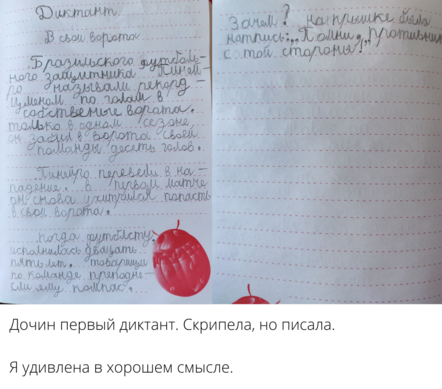 Диктант
В свои ворота
Бразильского футболь-
ного защитника Пиней-
ро называли рекорд-
сменом по голам в
собственые ворота.
только в одном сезоне
он забил в ворота своей
команды десять голов.
Пинейро перевели в на-
падение. в первом матче
он снова ухитрился попасть
в свои ворота.
когда футболисту
исполнилось двацать
пять лет. товарищи
по команде преподне-
сли ему компас.
Зачем? на крышке была
натпись: „Помни, противник
с той стороны!"
Дочин первый диктант. Скрипела, но писала.
Я удивлена в хорошем смысле.